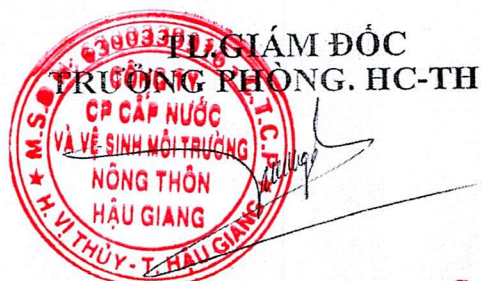 TL.GIÁM ĐỐC
TRƯỞNG PHÒNG. HC-TH
CÔNG TY
CP CẤP NƯỚC
VÀ VỆ SINH MÔI TRƯỜNG
NÔNG THÔN
HẬU GIANG
H. VỊ THỦY - T. HẬU GIANG